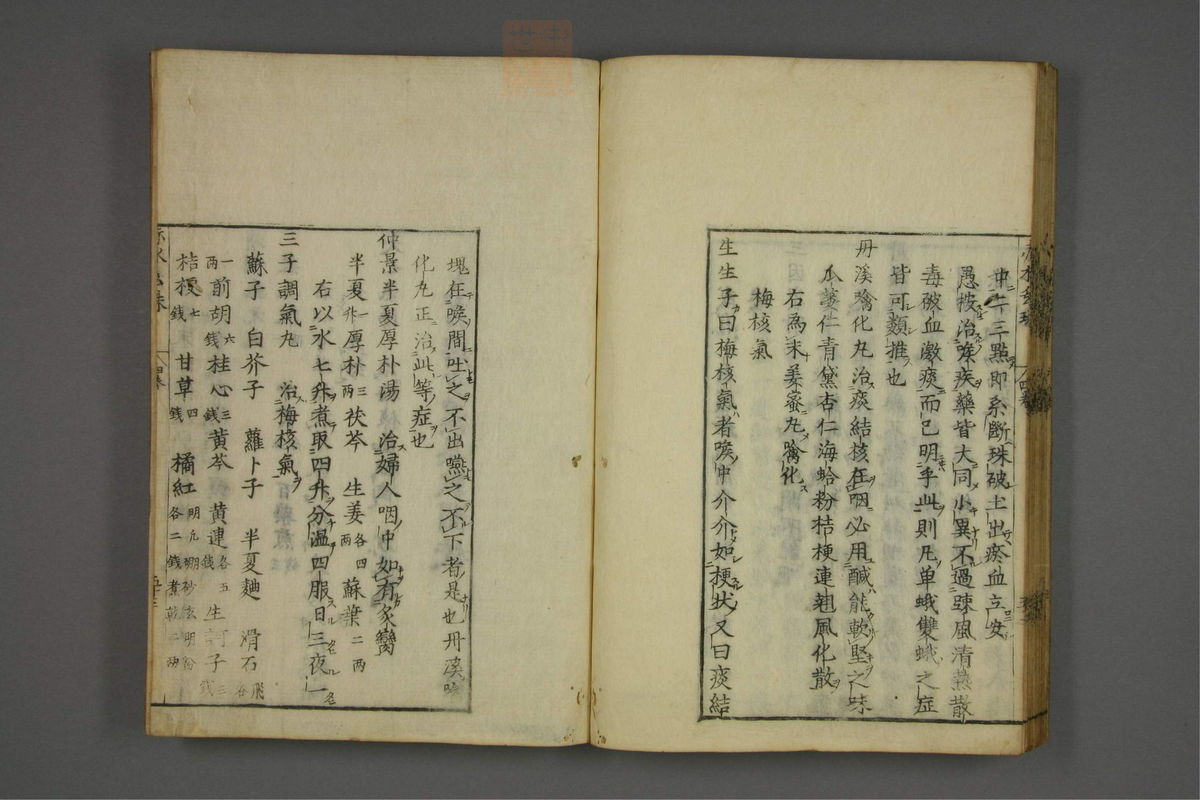 中卜三點即系斷珠破土出瘀血立安
愚按治喉疾藥皆大同小異不過踈風清熱散
毒破血激痰而已明乎此則凡单蛾雙蛾之症
皆可類推也
丹溪噙化丸治痰結核在咽必用醎能軟堅之味
瓜蔞仁青黛杏仁海蛤粉桔梗連翹風化散
右為末姜蜜丸噙化
梅核氣
生生子曰梅核氣者喉中介介如梗状又曰痰結
塊在喉間吐之不出嚥之不下者是也丹溪噙
化丸正治此等症也
仲景半夏厚朴湯 治婦人咽中如有炙臠
半夏一升厚朴三两茯苓 生姜各四两 蘇葉二两
右以水七升煮取四升分温四服日三夜一
三子調氣丸 治梅核氣
蘇子 白芥子 蘿卜子 半夏麯 滑石飛各
一两前胡六錢桂心三錢黄芩 黄連各五錢 生訶子三錢
桔梗七錢 甘草四錢 橘紅各二錢